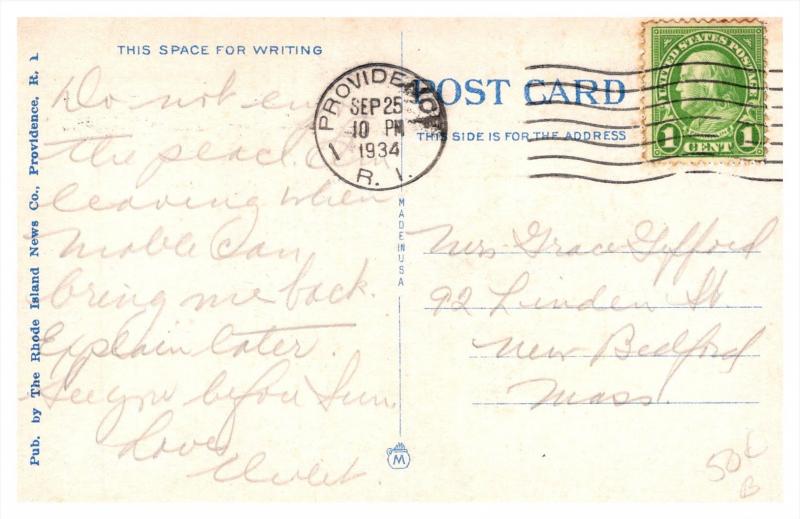 THIS SPACE FOR WRITING
Do not
the
leaving when
Mable can
bring me back.
Explain later.
See you before Sun.
Love,
Violet.
Pub. by The Rhode Island News Co., Providence, R. I.
PROVIDENCE
SEP 25
10 PM
1934
R. I.
1
POST CARD
THIS SIDE IS FOR THE ADDRESS
UNITED STATES POSTAGE
1 CENT 1
MADE IN USA
Mrs Grace Gifford
92 Linden St
New Bedford
Mass.
M
50¢
B